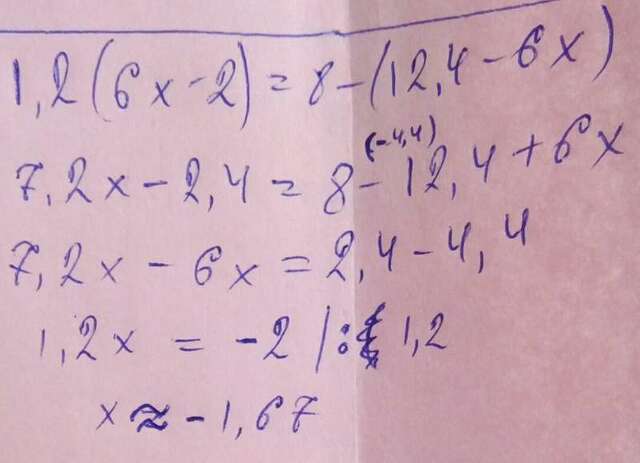 1,2(6x-2)=8-(12,4-6x)
(-4,4)
7,2x-2,4=8-12,4+6x
7,2x-6x=2,4-4,4
1,2x=-2|:1,2
x≈-1,67